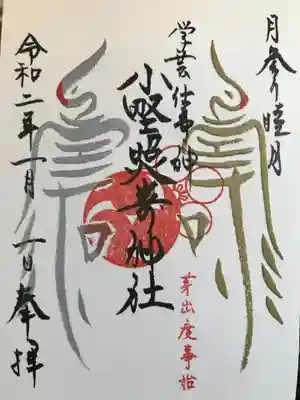 月参り睦月
学芸之神
小野照崎神社
芽出度事始
令和二年一月一日奉拝